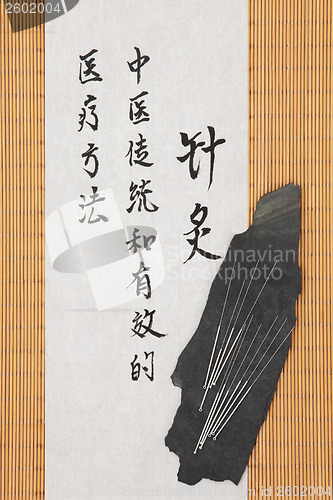 针灸
中医传统和有效的
医疗方法
2402014
© crestock.com 2402014